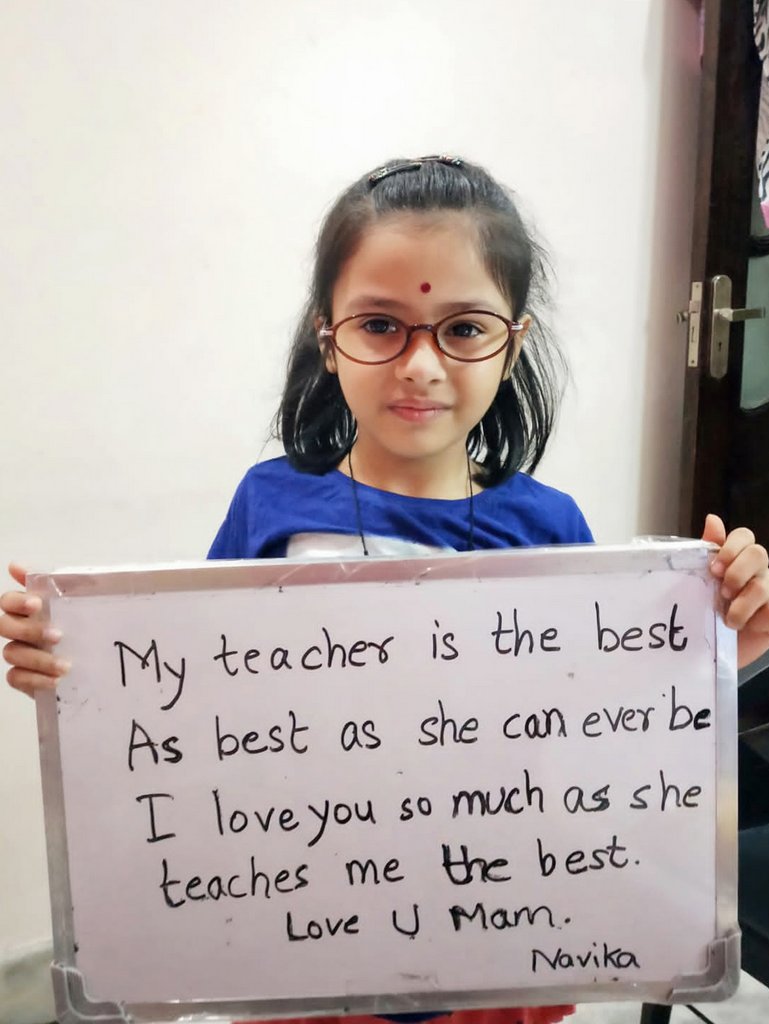 My teacher is the best
As best as she can ever be
I love you so much as she
teaches me the best.
Love U Mam.
Navika